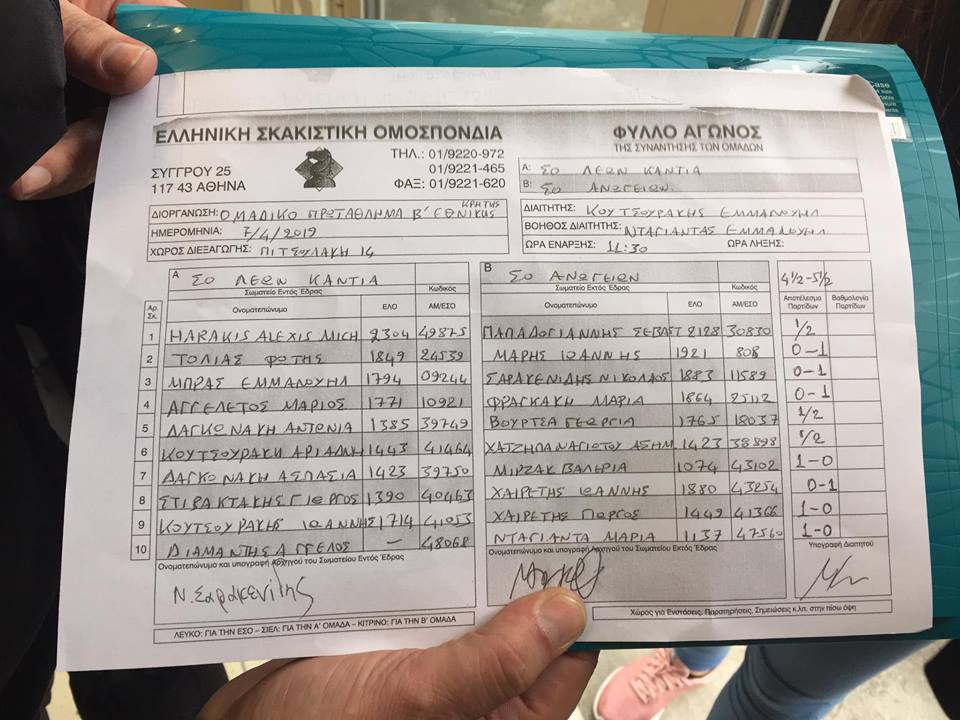 ΕΛΛΗΝΙΚΗ ΣΚΑΚΙΣΤΙΚΗ ΟΜΟΣΠΟΝΔΙΑ
ΣΥΓΓΡΟΥ 25
117 43 ΑΘΗΝΑ
ΤΗΛ.: 01/9220-972
01/9221-465
ΦΑΞ: 01/9221-620
ΦΥΛΛΟ ΑΓΩΝΟΣ
ΤΗΣ ΣΥΝΑΝΤΗΣΗΣ ΤΩΝ ΟΜΑΔΩΝ
Α: ΣΟ ΛΕΩΝ ΚΑΝΤΙΑ
Β: ΣΟ ΑΝΩΓΕΙΩΝ
ΔΙΟΡΓΑΝΩΣΗ: ΟΜΑΔΙΚΟ ΠΡΩΤΑΘΛΗΜΑ Β' ΕΘΝΙΚΗΣ ΚΡΗΤΗΣ
ΗΜΕΡΟΜΗΝΙΑ: 7/4/2019
ΧΩΡΟΣ ΔΙΕΞΑΓΩΓΗΣ: ΠΙΤΣΟΥΛΑΚΗ 14
ΔΙΑΙΤΗΤΗΣ: ΚΟΥΤΣΟΥΡΑΚΗΣ ΕΜΜΑΝΟΥΗΛ
ΒΟΗΘΟΣ ΔΙΑΙΤΗΤΗΣ: ΝΤΑΓΙΑΝΤΑΣ ΕΜΜΑΝΟΥΗΛ
ΩΡΑ ΕΝΑΡΞΗΣ: 11:30 ΩΡΑ ΛΗΞΗΣ:
Α ΣΟ ΛΕΩΝ ΚΑΝΤΙΑ
Σωματείο Εντός Έδρας Κωδικός
Αρ. Σκ. Ονοματεπώνυμο ΕΛΟ ΑΜ/ΕΣΟ
1 HARAKIS ALEXIS MICH 2304 49875
2 ΤΟΛΙΑΣ ΦΩΤΗΣ 1849 24539
3 ΜΠΡΑΣ ΕΜΜΑΝΟΥΗΛ 1794 09244
4 ΑΓΓΕΛΕΤΟΣ ΜΑΡΙΟΣ 1771 10921
5 ΔΑΓΚΩΝΑΚΗ ΑΝΤΩΝΙΑ 1385 39749
6 ΚΟΥΤΣΟΥΡΑΚΗ ΑΡΙΑΔΝΗ 1443 41464
7 ΔΑΓΚΩΝΑΚΗ ΑΣΠΑΣΙΑ 1423 39750
8 ΣΤΙΒΑΚΤΑΚΗΣ ΓΙΩΡΓΟΣ 1390 40463
9 ΚΟΥΤΣΟΥΡΑΚΗΣ ΙΩΑΝΝΗΣ 1714 41053
10 ΔΙΑΜΑΝΤΗΣ ΑΓΓΕΛΟΣ — 48068
Ονοματεπώνυμο και υπογραφή Αρχηγού του Σωματείου Εντός Έδρας
Ν. Σαρακενίδης
ΛΕΥΚΟ: ΓΙΑ ΤΗΝ ΕΣΟ – ΣΙΕΛ: ΓΙΑ ΤΗΝ Α' ΟΜΑΔΑ – ΚΙΤΡΙΝΟ: ΓΙΑ ΤΗΝ Β' ΟΜΑΔΑ
Β ΣΟ ΑΝΩΓΕΙΩΝ
Σωματείο Εκτός Έδρας Κωδικός
Ονοματεπώνυμο ΕΛΟ ΑΜ/ΕΣΟ
ΠΑΠΑΔΟΓΙΑΝΝΗΣ ΣΕΒΑΣΤ 2128 30830
ΜΑΡΗΣ ΙΩΑΝΝΗΣ 1921 808
ΣΑΡΑΚΕΝΙΔΗΣ ΝΙΚΟΛΑΟΣ 1883 11589
ΦΡΑΓΚΑΚΗ ΜΑΡΙΑ 1864 25112
ΒΟΥΡΤΣΑ ΓΕΩΡΓΙΑ 1765 18037
ΧΑΤΖΗΠΑΝΑΓΙΩΤΟΥ ΑΣΗΜ 1423 38898
ΜΙΡΖΑΚ ΒΑΛΕΡΙΑ 1074 43102
ΧΑΙΡΕΤΗΣ ΙΩΑΝΝΗΣ 1880 43254
ΧΑΙΡΕΤΗΣ ΓΙΩΡΓΟΣ 1449 41366
ΝΤΑΓΙΑΝΤΑ ΜΑΡΙΑ 1137 47560
Ονοματεπώνυμο και υπογραφή Αρχηγού του Σωματείου Εκτός Έδρας
4½-5½
Αποτέλεσμα Παρτίδων Βαθμολογία Παρτίδων
1/2
0-1
0-1
0-1
1/2
1/2
1-0
0-1
1-0
1-0
Υπογραφή Διαιτητού
Χώρος για Ενστάσεις, Παρατηρήσεις, Σημειώσεις κ.λπ. στην πίσω όψη